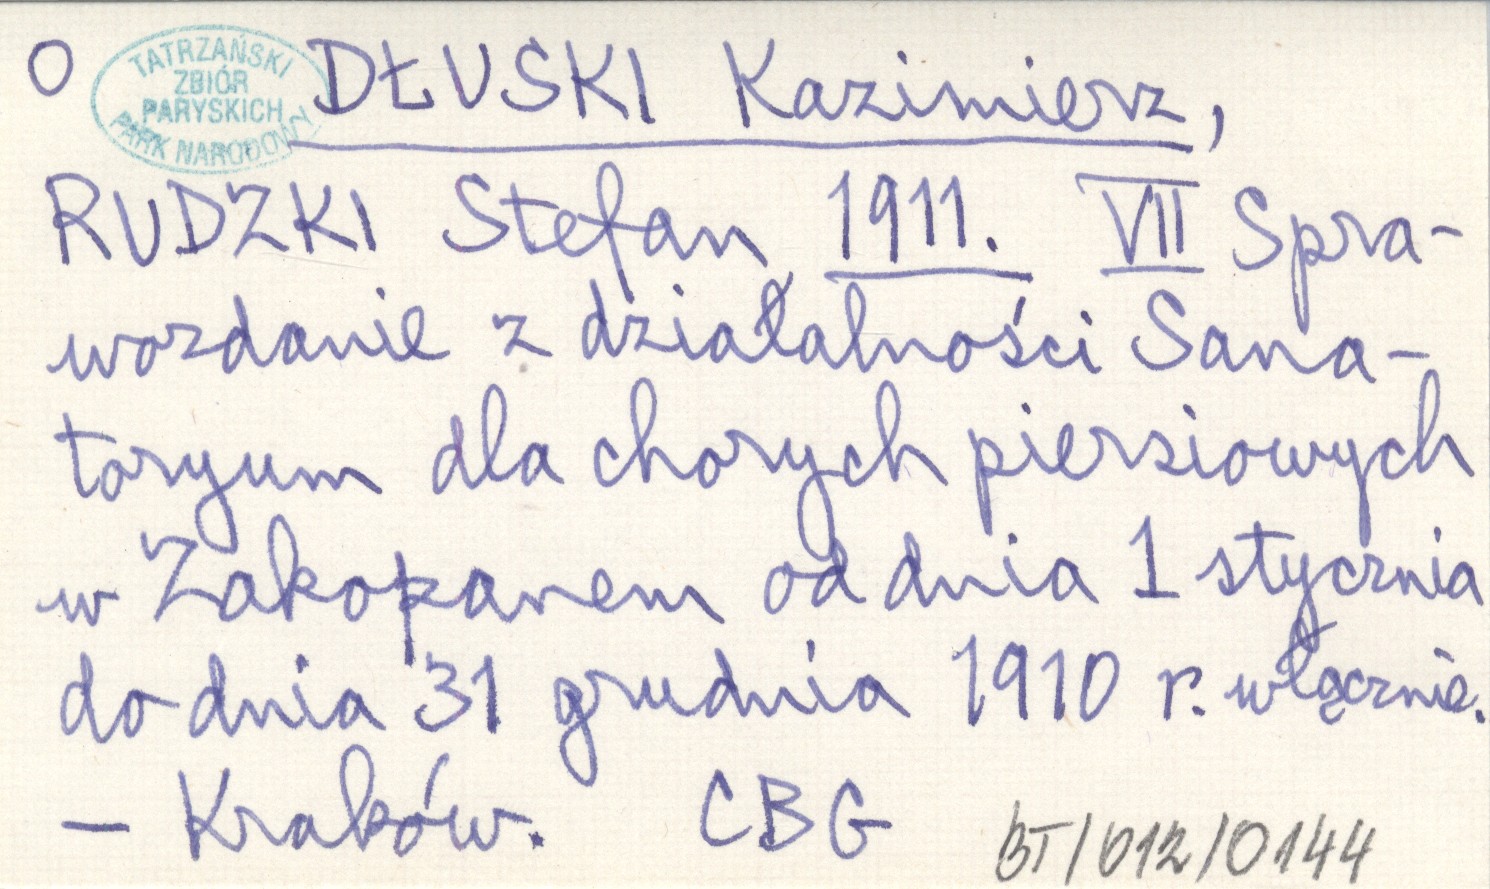 O
TATRZAŃSKI
ZBIÓR
PARYSKICH
PARK NARODOWY
DŁUSKI Kazimierz,
RUDZKI Stefan, 1911. VII Spra-
wozdanie z działalności Sana-
toryum dla chorych piersiowych
w Zakopanem od dnia 1 stycznia
do dnia 31 grudnia 1910 r. włącznie.
— Kraków. CBG
BT/012/0144